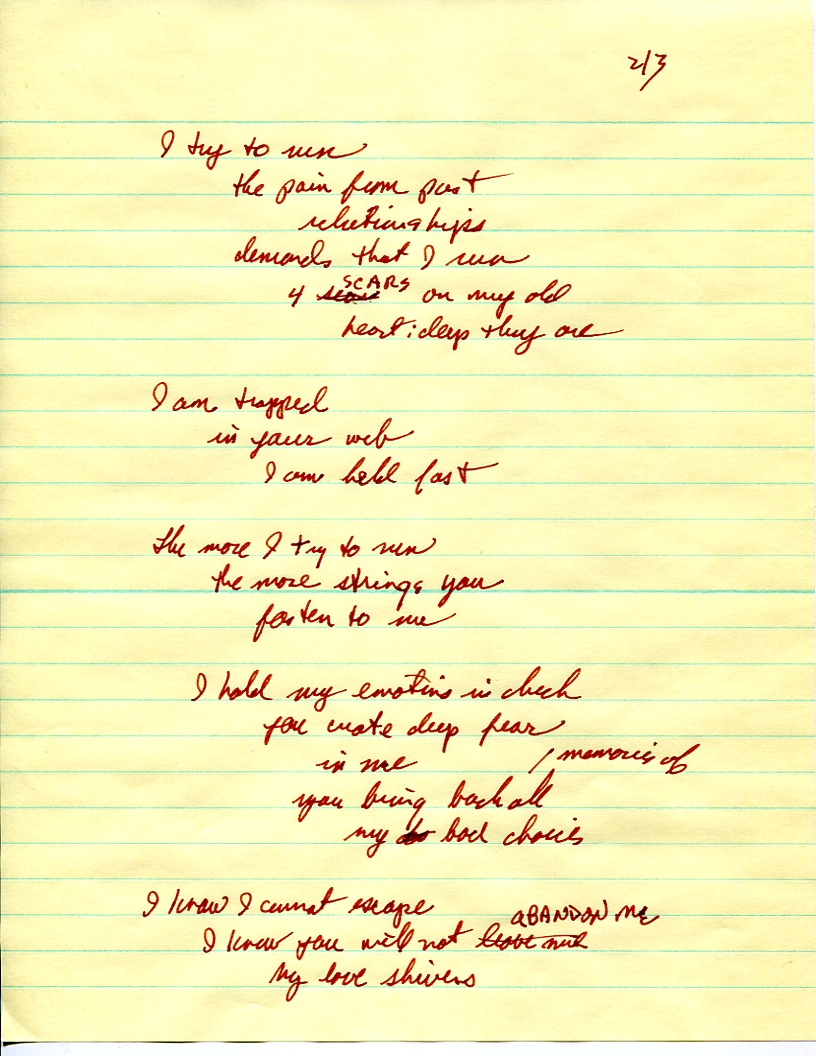 2/3
I try to run
the pain from past
relationships
demands that I run
4 SCARS on my old
heart: deep they are
I am trapped
in your web
I am held fast
the more I try to run
the more strings you
fasten to me
I hold my emotins in check
you create deep fear
in me / memories of
you bring back all
my bad choices
I know I cannot escape
I know you will not leave me aBANDON ME
my love shivers